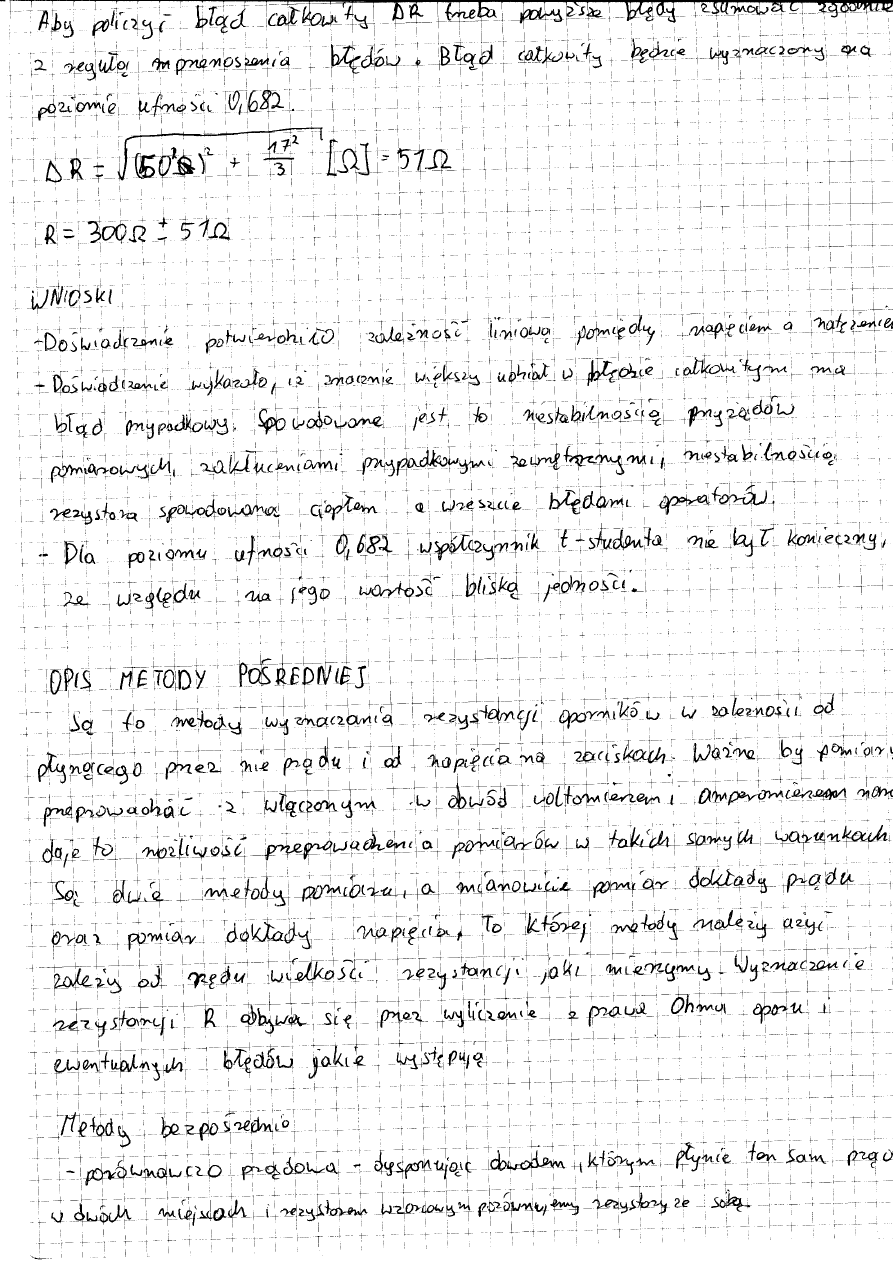 Aby policzyć błąd całkowity ΔR trzeba powyższe błędy zsumować zgodnie
z regułą mprzenoszenia błędów. Błąd całkowity będzie wyznaczony na
poziomie ufności 0,682.
ΔR = √((50Ω)² + 17²/3) [Ω] = 51Ω
R = 300Ω ± 51Ω
WNIOSKI
-Doświadczenie potwierdziło zależność liniową pomiędzy napięciem a natężenie
- Doświadczenie wykazało, iż znacznie większy udział w błędzie całkowitym ma
błąd przypadkowy. Spowodowane jest to niestabilnością przyrządów
pomiarowych, zakłuceniami przypadkowymi zewnętrznymi, niestabilnością
rezystora spowodowaną ciepłem a wreszcie błędami operatorów.
- Dla poziomu ufności 0,682 współczynnik t-studenta nie był konieczny,
ze względu na jego wartość bliską jedności.
OPIS METODY POŚREDNIEJ
Są to metody wyznaczania rezystancji oporników w zależności od
płynącego przez nie prądu i od napięcia na zaciskach. Ważne by pomiary
przeprowadzać z włączonym w obwód voltomierzem i amperomierzem nam
daje to możliwość przeprowadzenia pomiarów w takich samych warunkach
Są dwie metody pomiaru, a mianowicie pomiar dokłady prądu
oraz pomiar dokłady napięcia, To której metody należy użyć
zależy od rzędu wielkości rezystancji jaki mierzymy. Wyznaczenie
rezystancji R odbywa się przez wyliczenie z prawa Ohma oporu i
ewentualnych błędów jakie występują
Metody bezpośrednio
- porównawczo prądowa - dysponując obwodem, którym płynie ten sam prąd
w dwóch miejscach i rezystorem wzorcowym porównujemy rezystory ze sobą.